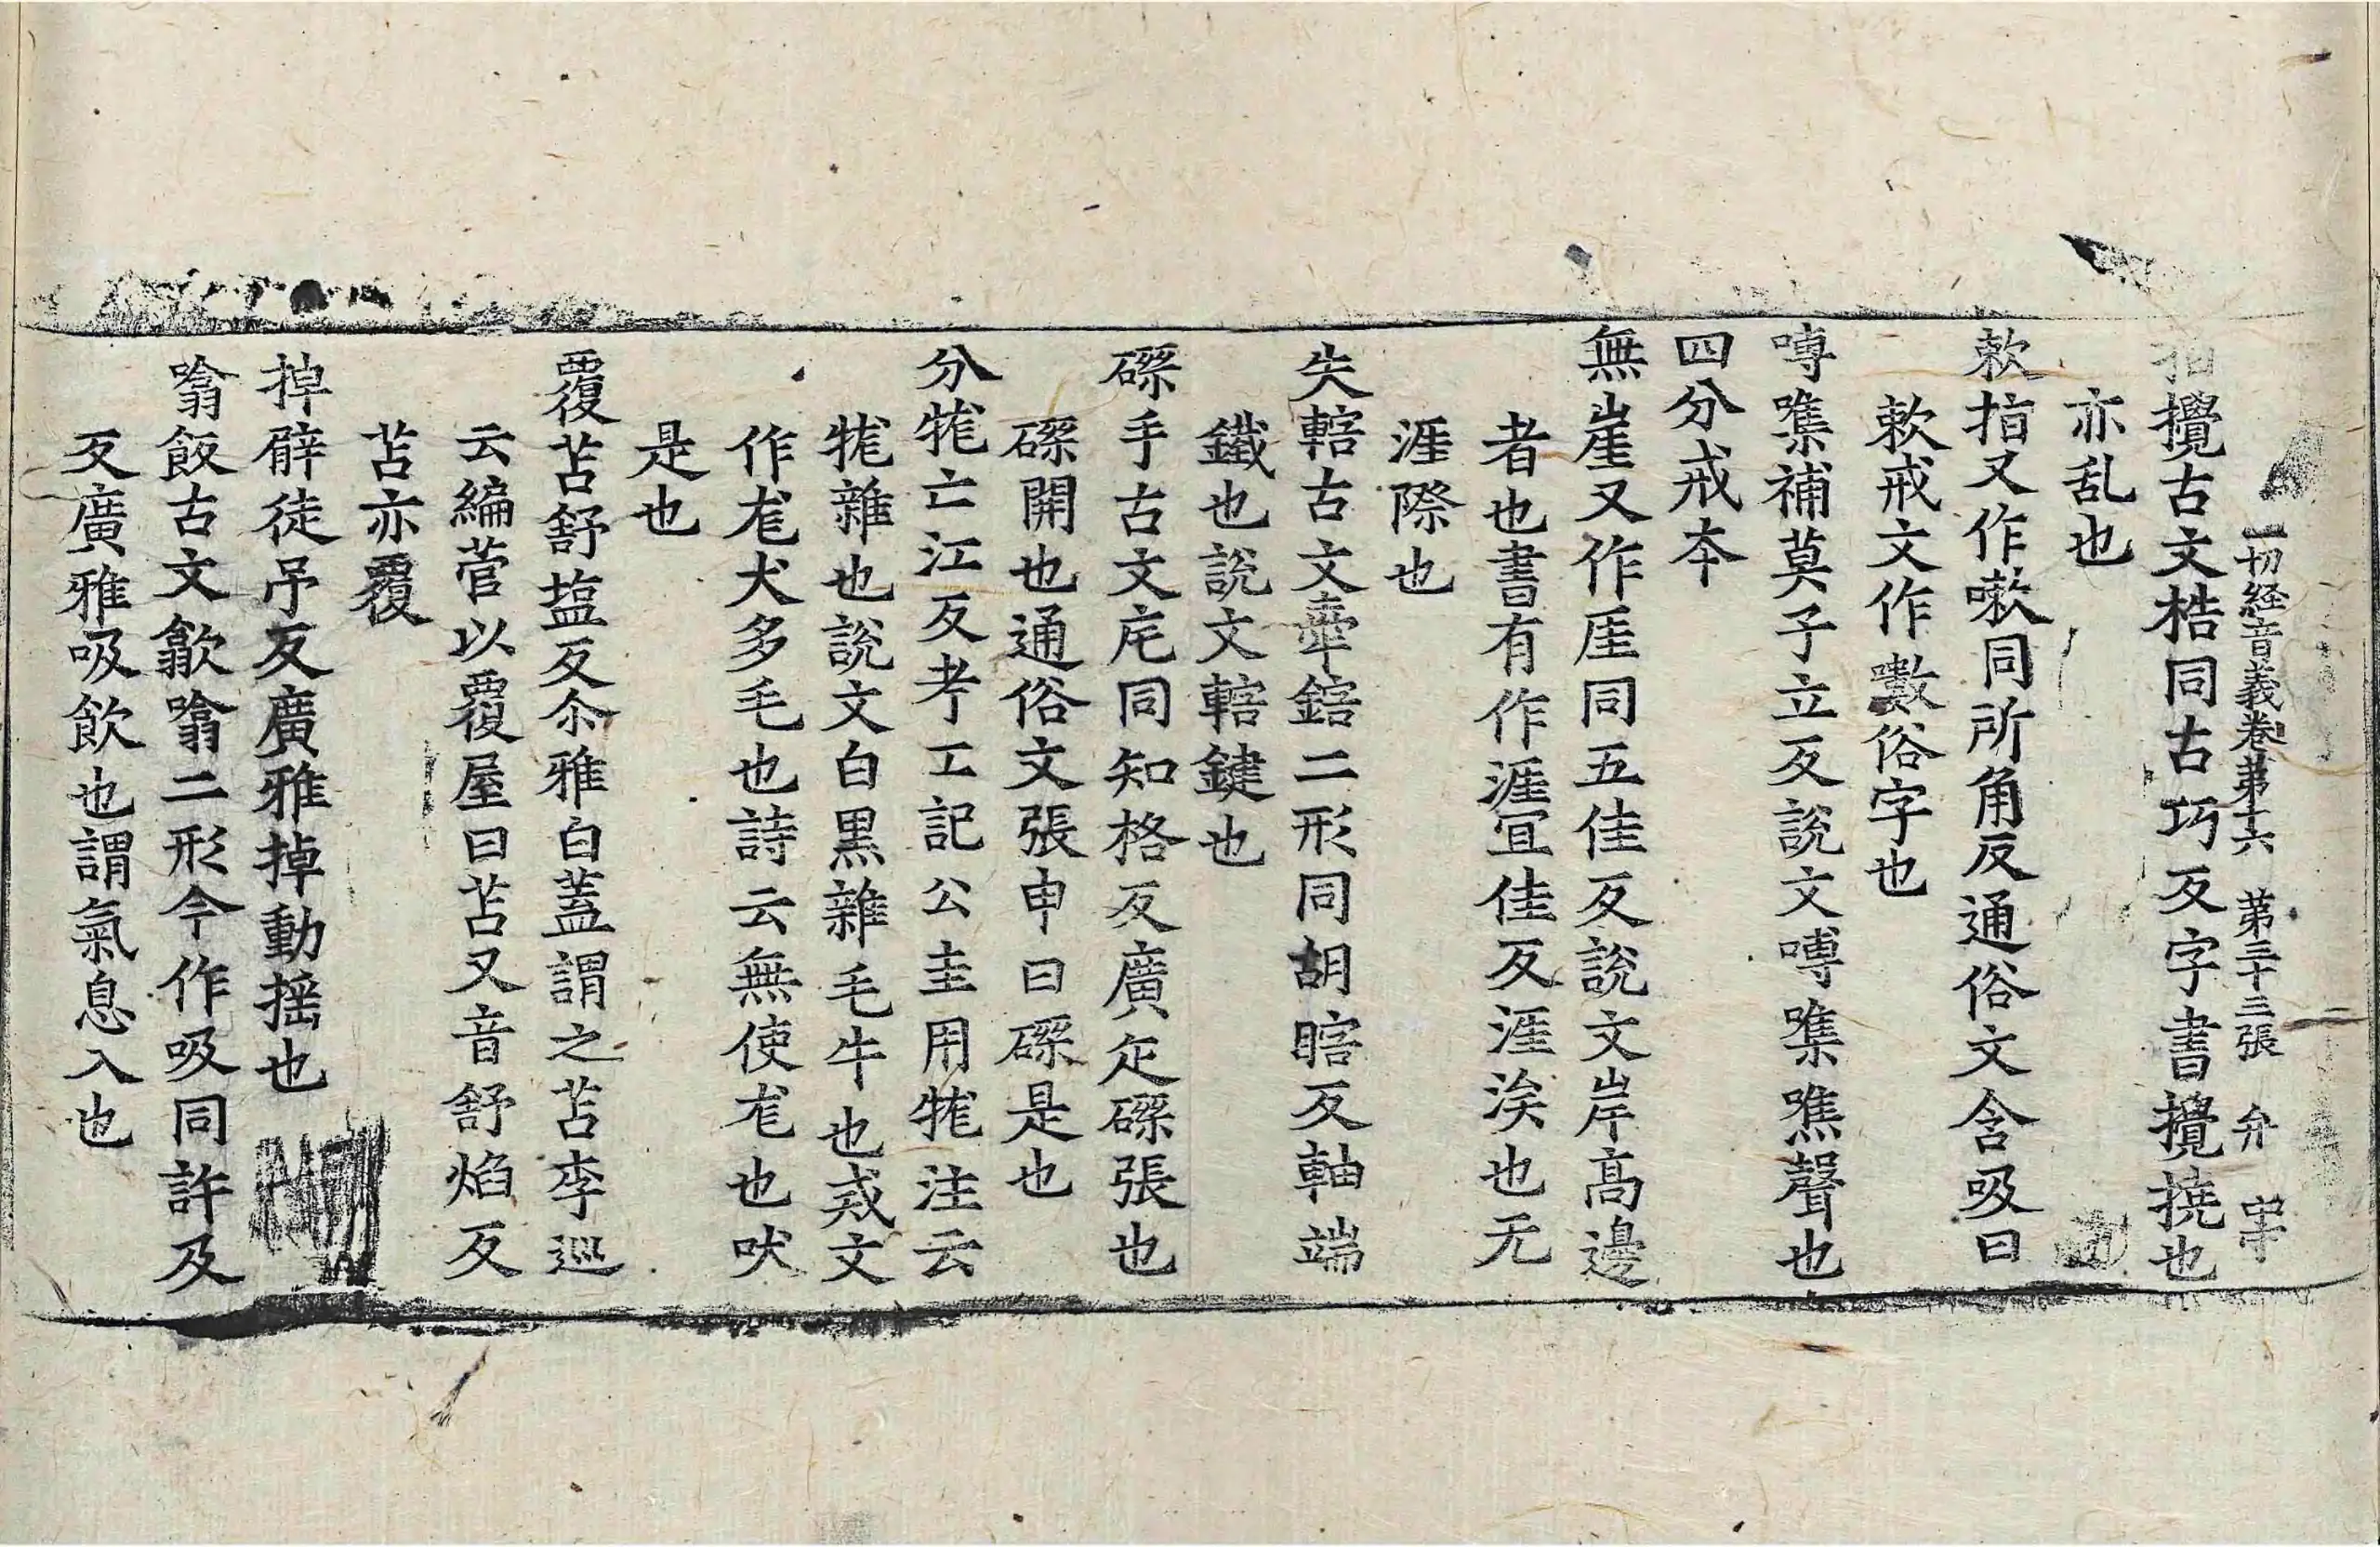 一切経音義卷苐十六 苐三十三張 弁 中于
攪古文捁同古巧反字書攪撓也
亦乱也
欶指又作嗽同所角反通俗文含吸曰
欶戒文作㘜俗字也
嚩噍補莫子立反說文嚩噍噍聲也
四分戒本
無崖又作厓同五佳反說文岸髙邊
者也書有作涯冝佳反涯涘也无
涯際也
失轄古文舝鎋二形同胡瞎反軸端
鐵也說文轄鍵也
磔手古文㡯同知格反廣疋磔張也
磔開也通俗文張申曰磔是也
分牻亡江反考工記公圭用牻注云
牻雜也說文白黒雜毛牛也戒文
作尨犬多毛也詩云無使尨也吠
是也
覆苫舒塩反尒雅白蓋謂之苫李巡
云編菅以覆屋曰苫又音舒焰反
苫亦覆
掉臂徒吊反廣雅掉動摇也
噏飯古文歙噏二形今作吸同許及
反廣雅吸飲也謂氣息入也